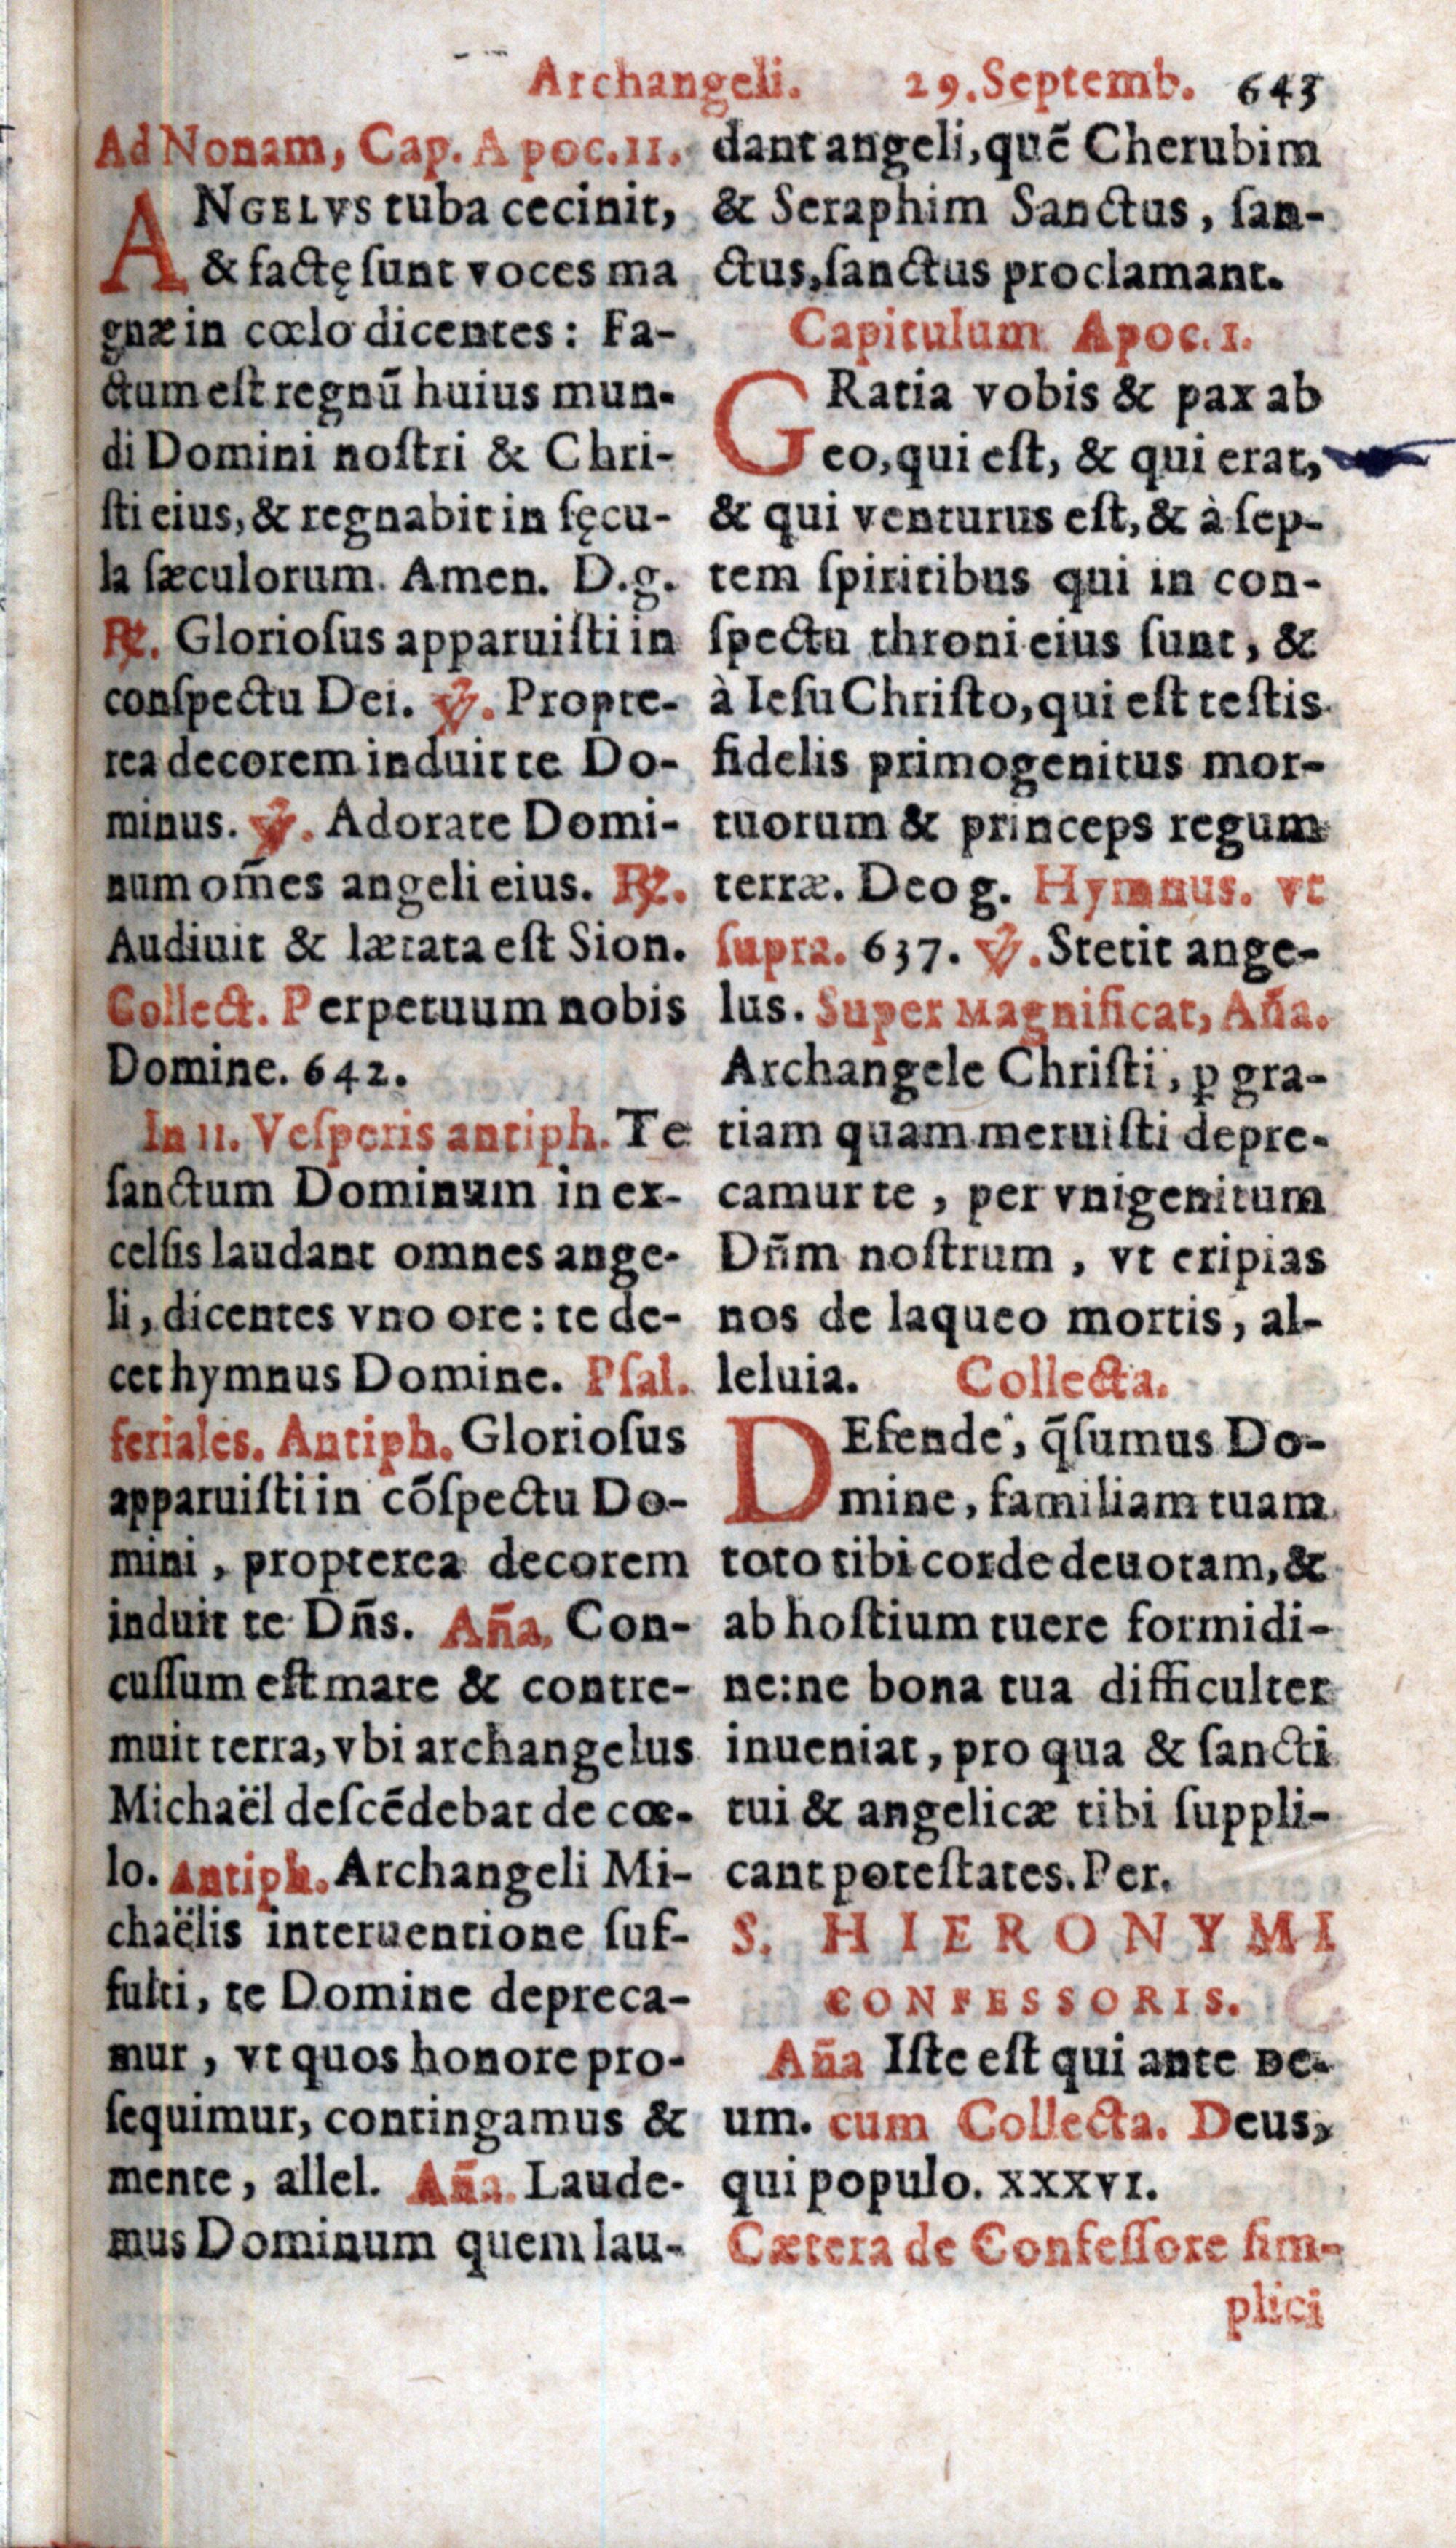 Archangeli. 29. Septemb. 643
Ad Nonam, Cap. Apoc. 11.
ANGELVS tuba cecinit,
& factę ſunt voces ma
gnæ in cœlo dicentes: Fa-
ctum eſt regnū huius mun-
di Domini noſtri & Chri-
ſti eius, & regnabit in ſęcu-
la ſæculorum. Amen. D.g.
℟. Glorioſus apparuiſti in
conſpectu Dei. ℣. Propte-
rea decorem induit te Do-
minus. ℣. Adorate Domi-
num om̄es angeli eius. ℟.
Audiuit & lætata eſt Sion.
Collect. Perpetuum nobis
Domine. 642.
In 11. Veſperis antiph. Te
ſanctum Dominum in ex-
celſis laudant omnes ange-
li, dicentes vno ore: te de-
cet hymnus Domine. Pſal.
feriales. Antiph. Glorioſus
apparuiſti in cōſpectu Do-
mini, propterea decorem
induit te Dn̄s. An̄a, Con-
cuſſum eſt mare & contre-
muit terra, vbi archangelus
Michaël deſcēdebat de cœ-
lo. Antiph. Archangeli Mi-
chaëlis interuentione ſuf-
fulti, te Domine depreca-
mur, vt quos honore pro-
ſequimur, contingamus &
mente, allel. An̄a. Laude-
mus Dominum quem lau-
dant angeli, quē Cherubim
& Seraphim Sanctus, ſan-
ctus, ſanctus proclamant.
Capitulum Apoc. 1.
GRatia vobis & pax ab
eo, qui eſt, & qui erat,
& qui venturus eſt, & à ſep-
tem ſpiritibus qui in con-
ſpectu throni eius ſunt, &
à Ieſu Chriſto, qui eſt teſtis
fidelis primogenitus mor-
tuorum & princeps regum
terræ. Deo g. Hymnus. vt
ſupra. 637. ℣. Stetit ange-
lus. Super Magnificat, An̄a.
Archangele Chriſti, ꝑ gra-
tiam quam meruiſti depre-
camur te, per vnigenitum
Dn̄m noſtrum, vt eripias
nos de laqueo mortis, al-
leluia. Collecta.
DEfende, q̄ſumus Do-
mine, familiam tuam
toto tibi corde deuotam, &
ab hoſtium tuere formidi-
ne: ne bona tua difficulter
inueniat, pro qua & ſancti
tui & angelicæ tibi ſuppli-
cant poteſtates. Per.
S. HIERONYMI
CONFESSORIS.
An̄a Iſte eſt qui ante De-
um. cum Collecta. Deus,
qui populo. XXXVI.
Cætera de Confeſſore ſim-
plici